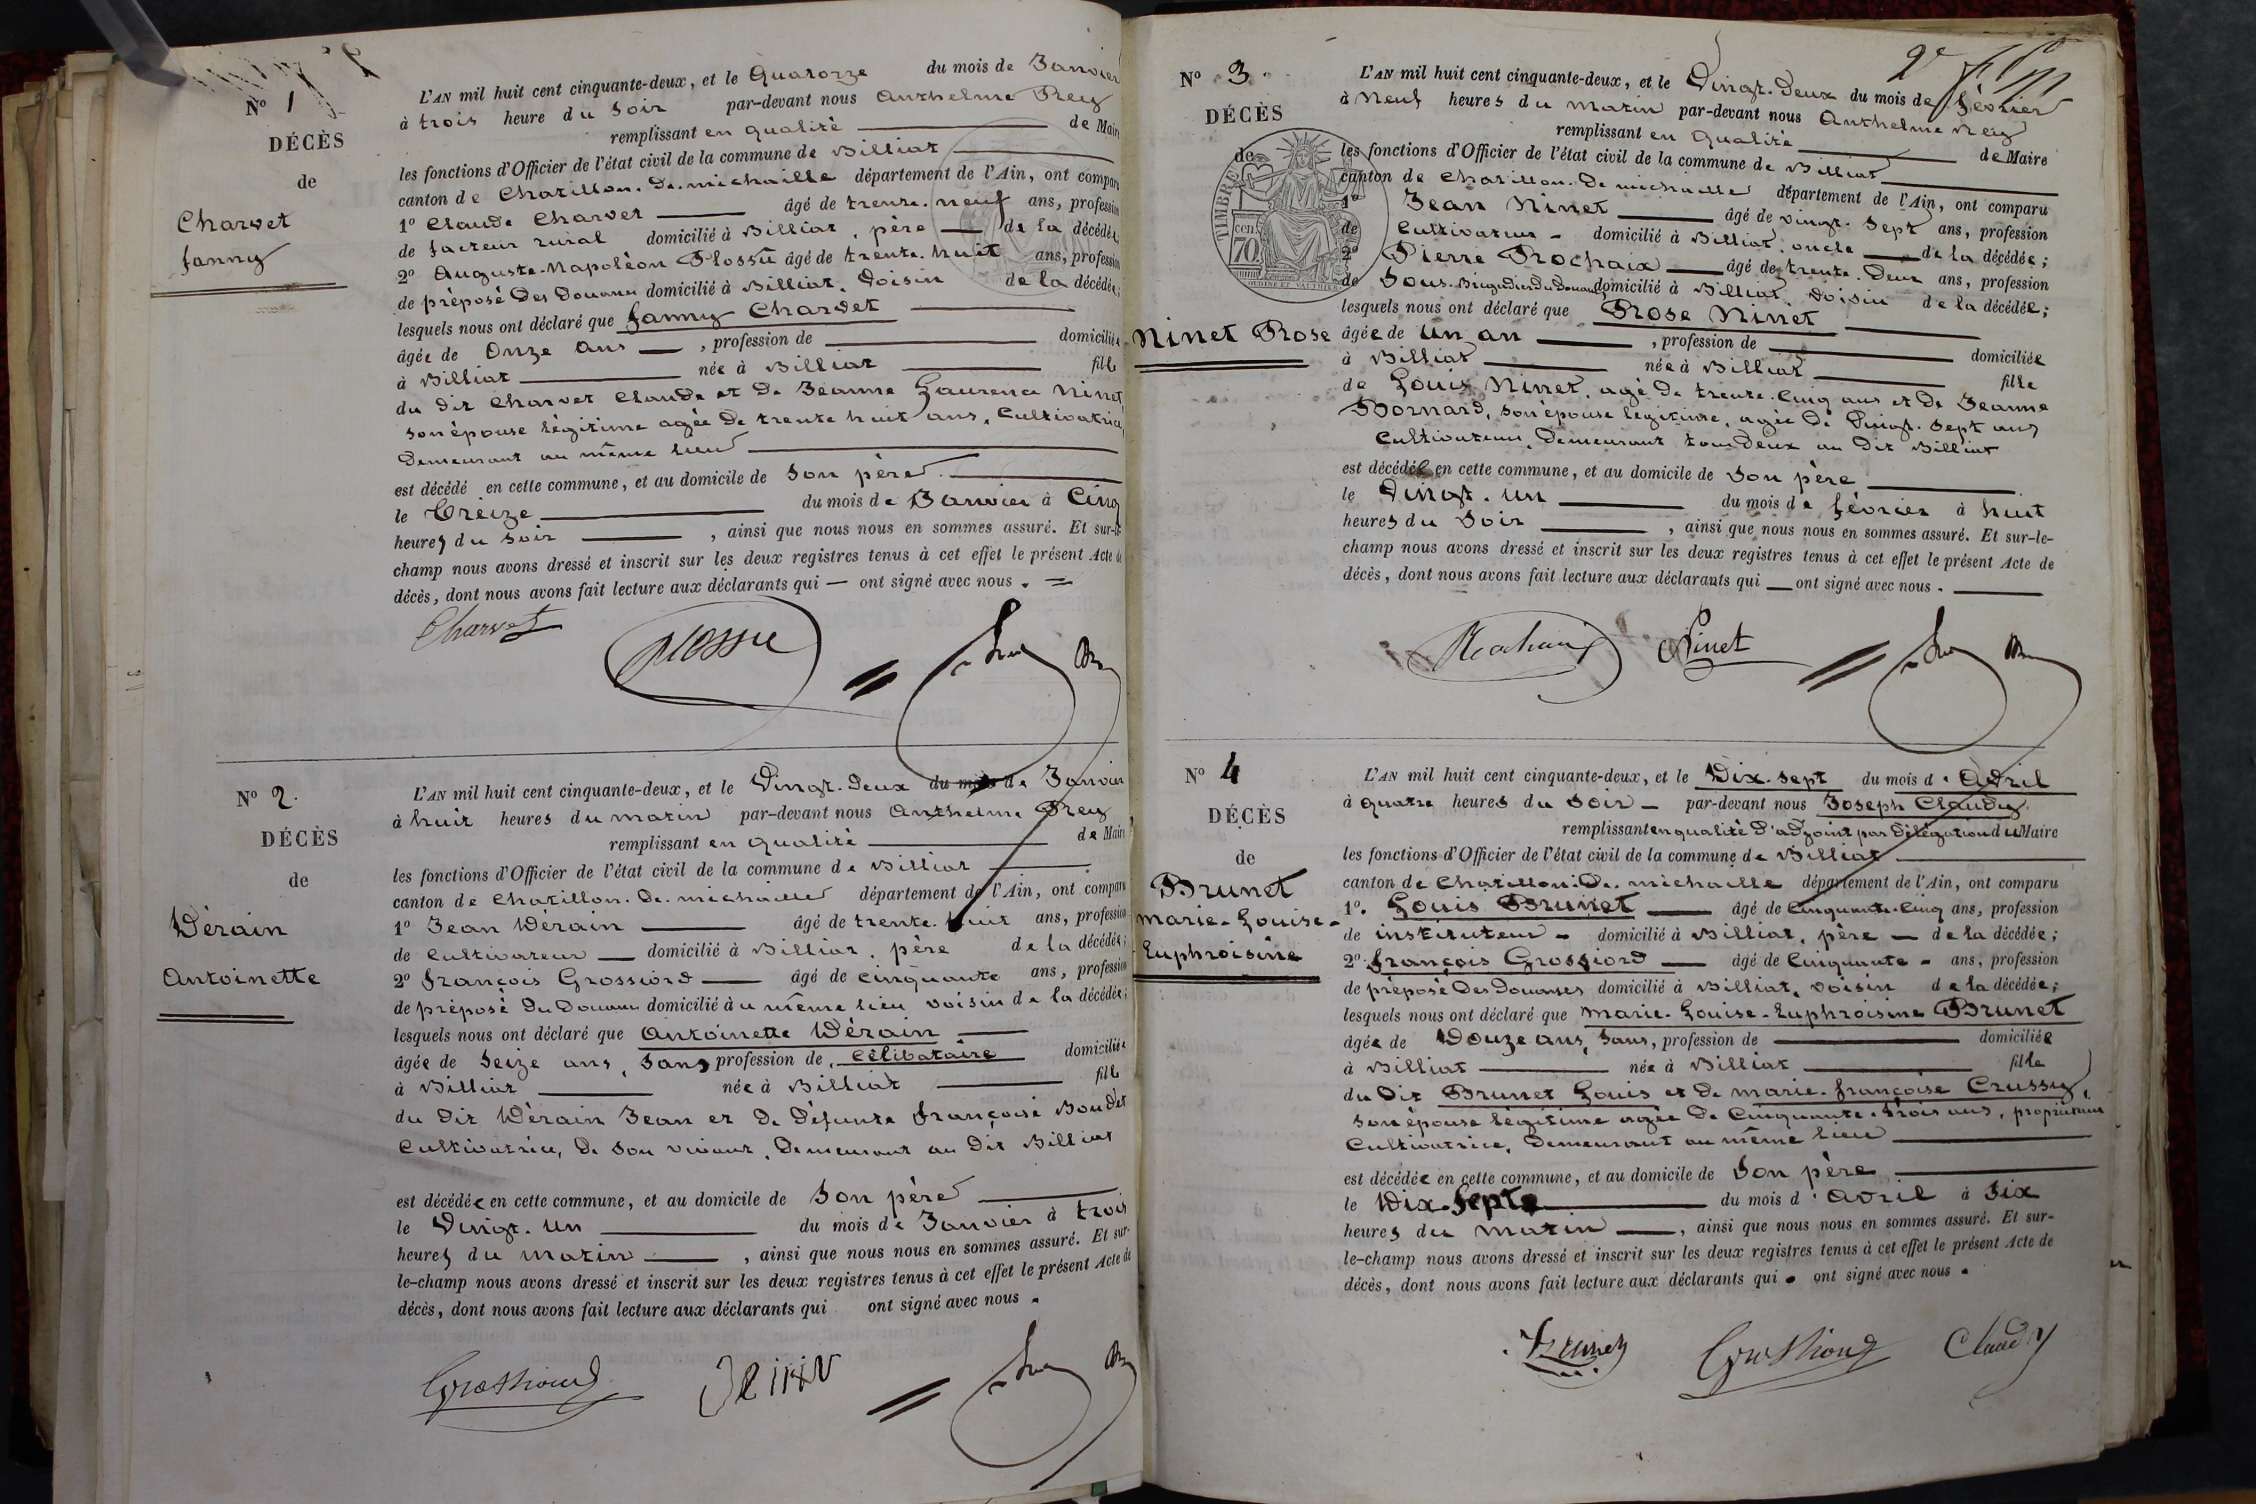 N° 1
DÉCÈS
de
Charvet
fanny
L'AN mil huit cent cinquante-deux, et le Quatorze du mois de Janvier
à trois heure du Soir par-devant nous Anthelme Rey
remplissant en qualité de Maire
les fonctions d'Officier de l'état civil de la commune de Billiat
canton de Chatillon. De. michaille département de l'Ain, ont comparu
1° Claude Charvet âgé de trente. neuf ans, profession
de facteur rural domicilié à Billiat, père de la décédée,
2° Auguste-Napoléon Plossu âgé de trente. huit ans, profession
de préposé Des Douanes domicilié à Billiat, Voisin de la décédée;
lesquels nous ont déclaré que fanny Charvet
âgée de Onze Ans, profession de domiciliée
à Billiat née à Billiat fille
du dit Charvet Claude et De Jeanne Laurence Ninet,
Son épouse légitime agée De trente huit ans, Cultivatrice,
Demeurant au même lieu
est décédé en cette commune, et au domicile de Son père
le Treize du mois de Janvier à Cinq
heures du Soir, ainsi que nous nous en sommes assuré. Et sur-le-
champ nous avons dressé et inscrit sur les deux registres tenus à cet effet le présent Acte de
décès, dont nous avons fait lecture aux déclarants qui — ont signé avec nous.
Charvet
Plossu
N° 2.
DÉCÈS
de
Dérain
Antoinette
L'AN mil huit cent cinquante-deux, et le Vingt. Deux du mois de Janvier
à huit heures du matin par-devant nous Anthelme Rey
remplissant en qualité de Maire
les fonctions d'Officier de l'état civil de la commune de Billiat
canton de Chatillon. De. michaille département de l'Ain, ont comparu
1° Jean Dérain âgé de trente. huit ans, profession
de Cultivateur domicilié à Billiat, père de la décédée;
2° françois Grossiord âgé de cinquante ans, profession
de préposé Du Douane domicilié à u même lieu voisin de la décédée;
lesquels nous ont déclaré que Antoinette Dérain
âgée de Seize ans, Sans profession de, Célibataire domiciliée
à Billiat née à Billiat fille
du Dit Dérain Jean et De Défunte françoise Boudet
Cultivatrice, De Son vivant, Demeurant au Dit Billiat
est décédée en cette commune, et au domicile de Son père
le Vingt. un du mois de Janvier à trois
heures du matin, ainsi que nous nous en sommes assuré. Et sur-
le-champ nous avons dressé et inscrit sur les deux registres tenus à cet effet le présent Acte de
décès, dont nous avons fait lecture aux déclarants qui ont signé avec nous.
Grossiord
N° 3.
DÉCÈS
de
TIMBRE
cen.
70
Ninet Rose
L'AN mil huit cent cinquante-deux, et le Vingt. Deux du mois de février
à Neuf heures du matin par-devant nous Anthelme Rey
remplissant en qualité de Maire
les fonctions d'Officier de l'état civil de la commune de Billiat
canton de Chatillon. De michaille département de l'Ain, ont comparu
1° Jean Ninet âgé de vingt. Sept ans, profession
de Cultivateur domicilié à Billiat, oncle de la décédée;
2° Pierre Prochaix âgé de trente. Deux ans, profession
de Sous-Brigadier Du Douane, domicilié à Billiat, voisin de la décédée;
lesquels nous ont déclaré que Rose Ninet
âgée de un an, profession de domiciliée
à Billiat née à Billiat fille
de Louis Ninet, agé De trente. Cinq ans et De Jeanne
Bornard, Son épouse légitime, agée De Vingt. Sept ans
Cultivateurs, Demeurant tous Deux au Dit Billiat
est décédée en cette commune, et au domicile de Son père
le Vingt. un du mois de février à huit
heures du Soir, ainsi que nous nous en sommes assuré. Et sur-le-
champ nous avons dressé et inscrit sur les deux registres tenus à cet effet le présent Acte de
décès, dont nous avons fait lecture aux déclarants qui — ont signé avec nous.
Ninet
N° 4
DÉCÈS
de
Brunet
marie-Louise-
Euphroisine
L'AN mil huit cent cinquante-deux, et le Dix. Sept du mois d'Avril
à quatre heures du Soir par-devant nous Joseph Claudy
remplissant en qualité D'adjoint par Délégation du Maire
les fonctions d'Officier de l'état civil de la commune de Billiat
canton de Chatillon. De. michaille département de l'Ain, ont comparu
1°. Louis Brunet âgé de Cinquante. Cinq ans, profession
de instituteur domicilié à Billiat, père de la décédée;
2° françois Grossiord âgé de Cinquante ans, profession
de préposé Des Douanes domicilié à Billiat, voisin de la décédée;
lesquels nous ont déclaré que marie-Louise-Euphroisine Brunet
âgée de Douze ans, Sans, profession de domiciliée
à Billiat née à Billiat fille
du Dit Brunet Louis et De marie-françoise Crussy,
Son épouse légitime agée De Cinquante. trois ans, propriétaire
Cultivatrice, Demeurant au même lieu
est décédée en cette commune, et au domicile de Son père
le Dix. Sept du mois d'Avril à Six
heures du matin, ainsi que nous nous en sommes assuré. Et sur-
le-champ nous avons dressé et inscrit sur les deux registres tenus à cet effet le présent Acte de
décès, dont nous avons fait lecture aux déclarants qui ont signé avec nous.
Brunet
Grossiord
Claudy